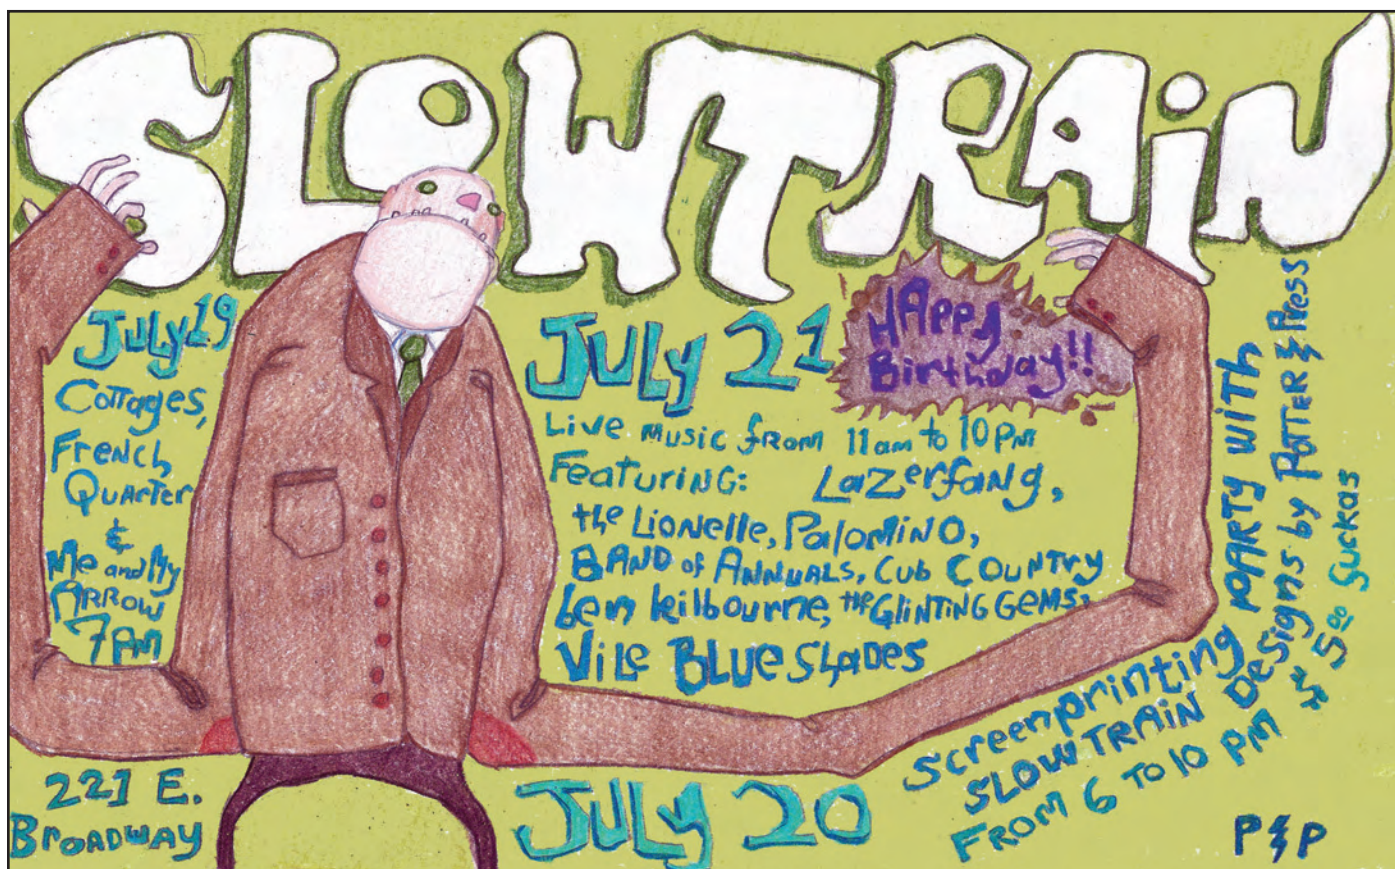 SLOWTRAiN
July 19
Cottages,
French
Quarter
&
Me and My
Arrow
7 PM
July 21
HAppy
Birthday!!
Live music from 11am to 10 PM
Featuring: Lazerfang,
the Lionelle, Palomino,
BAND of ANNUALS, Cub COUNTRY
ben kilbourne, the GLINTING GEMS,
Vile BLUE SHADES
221 E.
BROADWAY
July 20
Screenprinting PARTY with
SLOWTRAiN DeSigns by POTTER & Press
FROM 6 TO 10 PM
5.00 Suckas
P & P